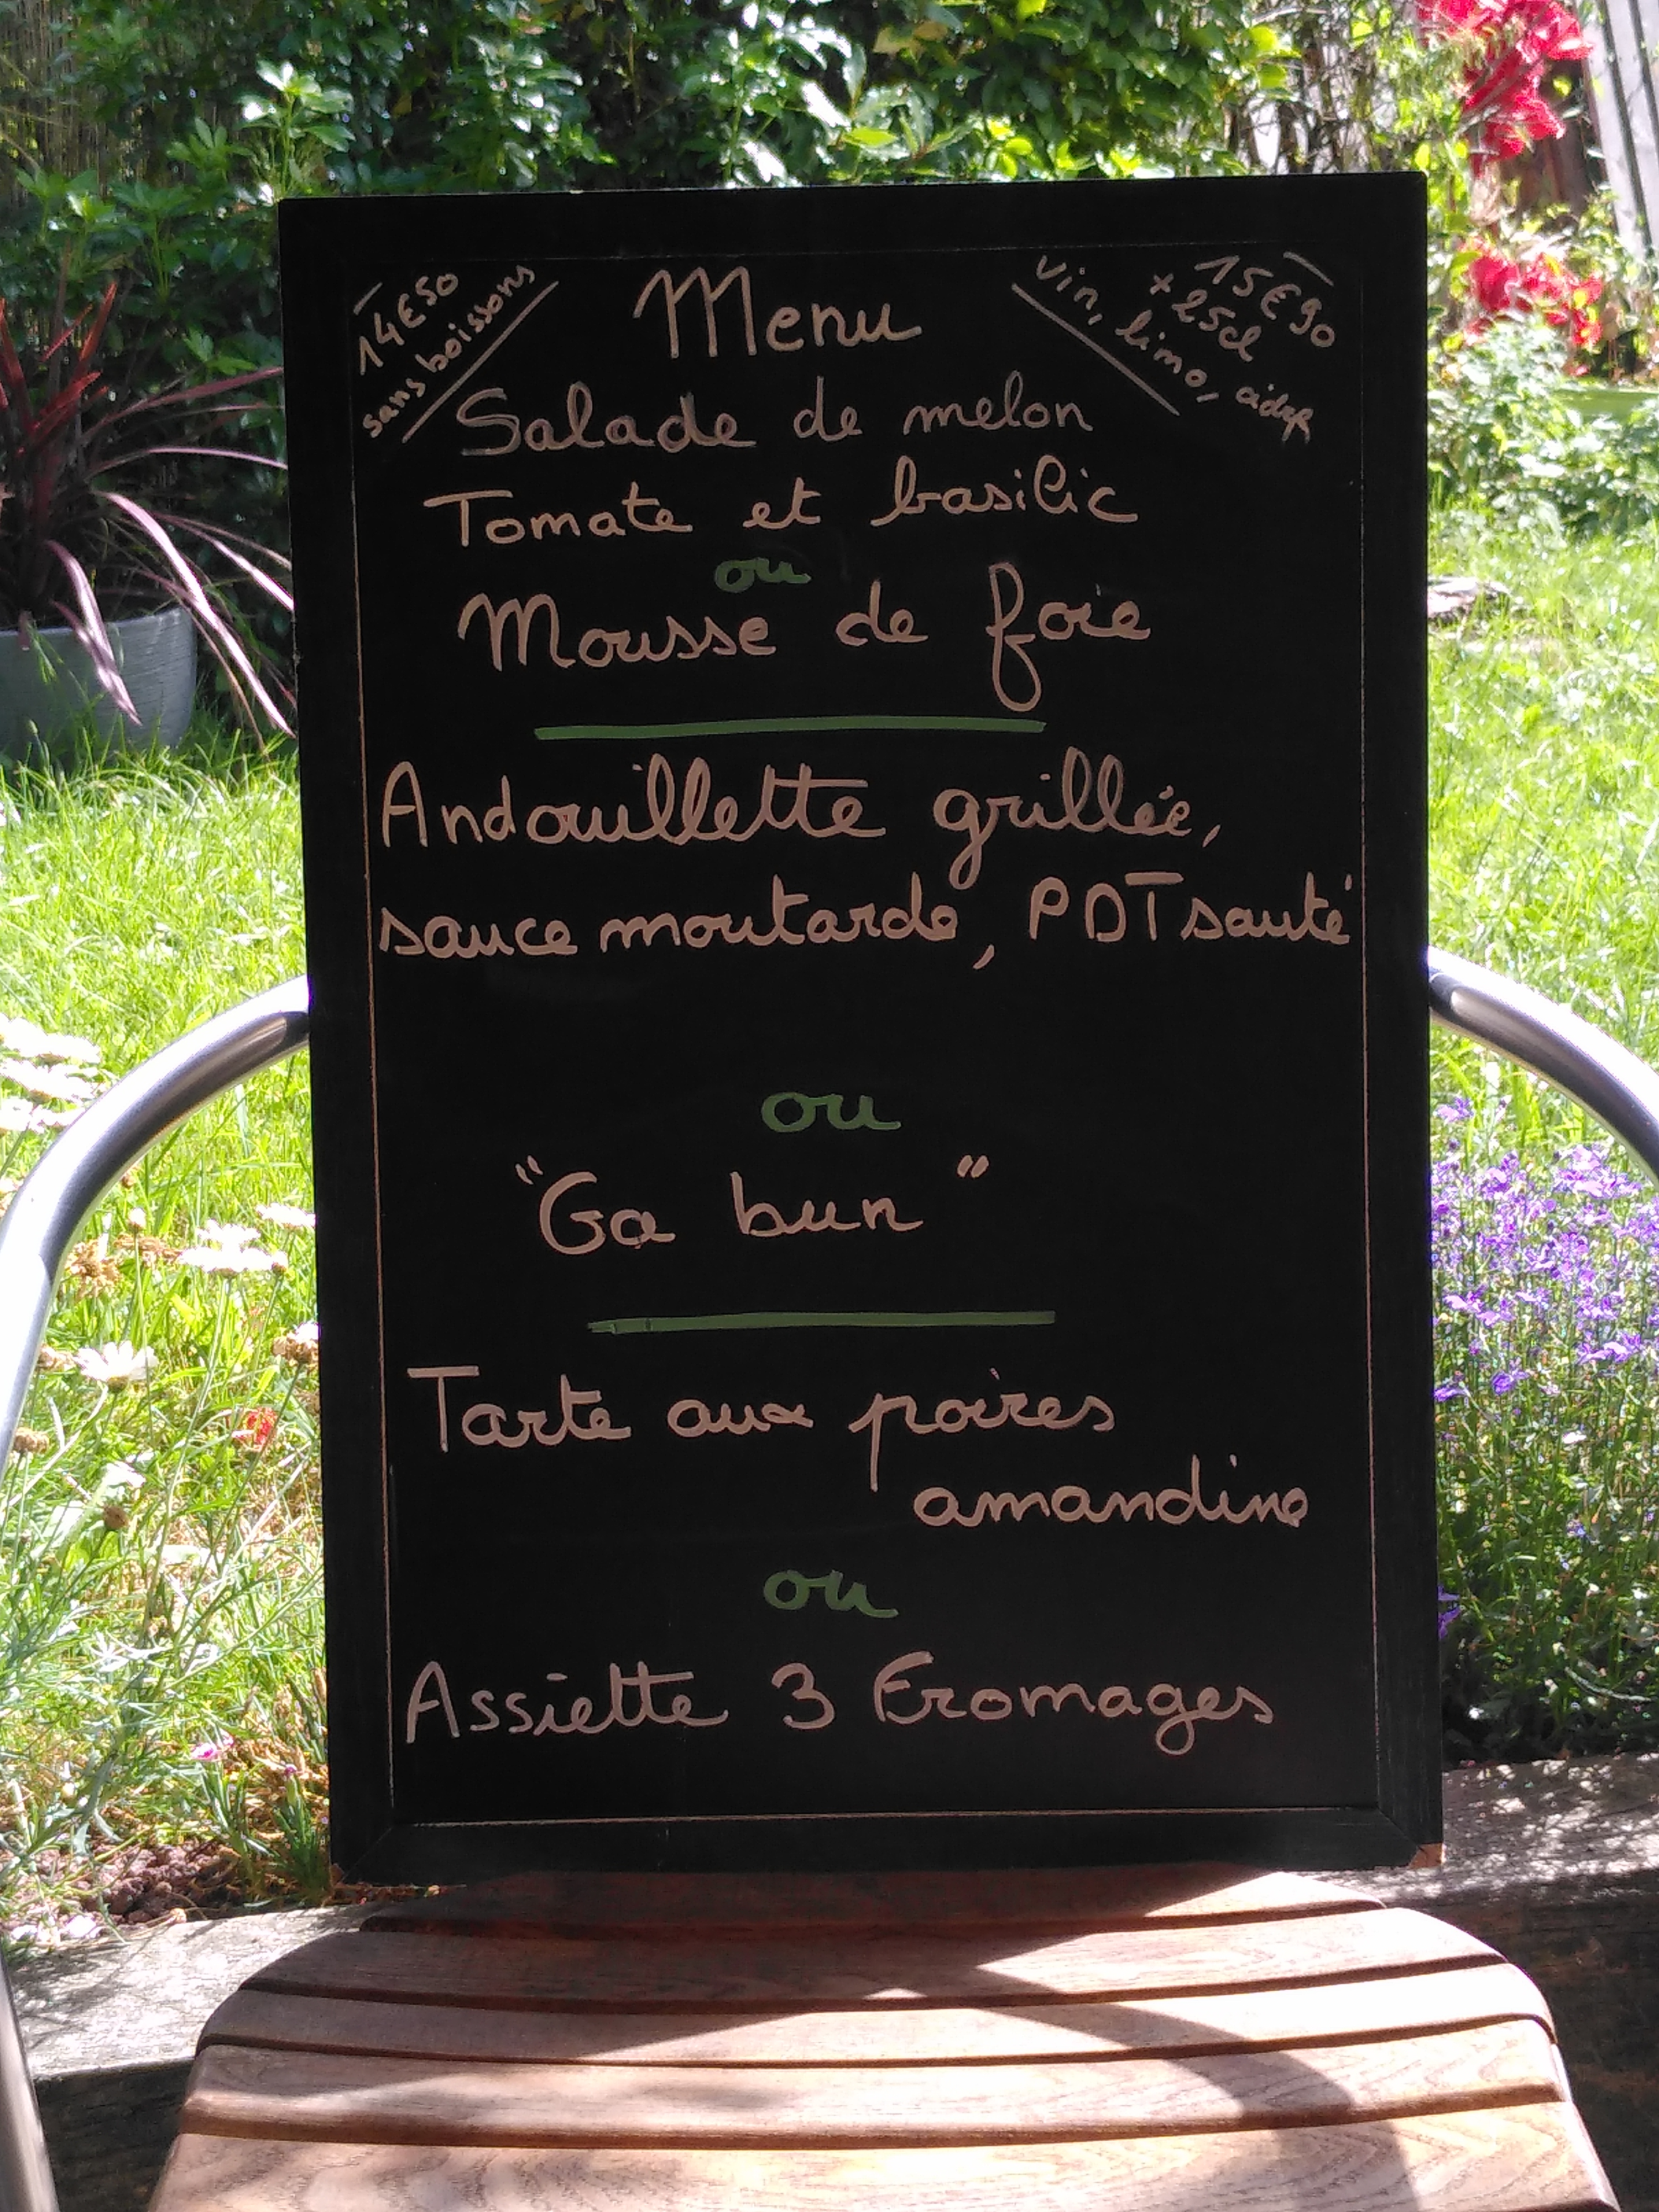 14€50
sans boissons
Menu
15€90
+ 25cl
vin, limo, cidre
Salade de melon
Tomate et basilic
ou
Mousse de foie
Andouillette grillée,
sauce moutarde, PDT sauté
ou
"Ga bun"
Tarte aux poires
amandine
ou
Assiette 3 Fromages